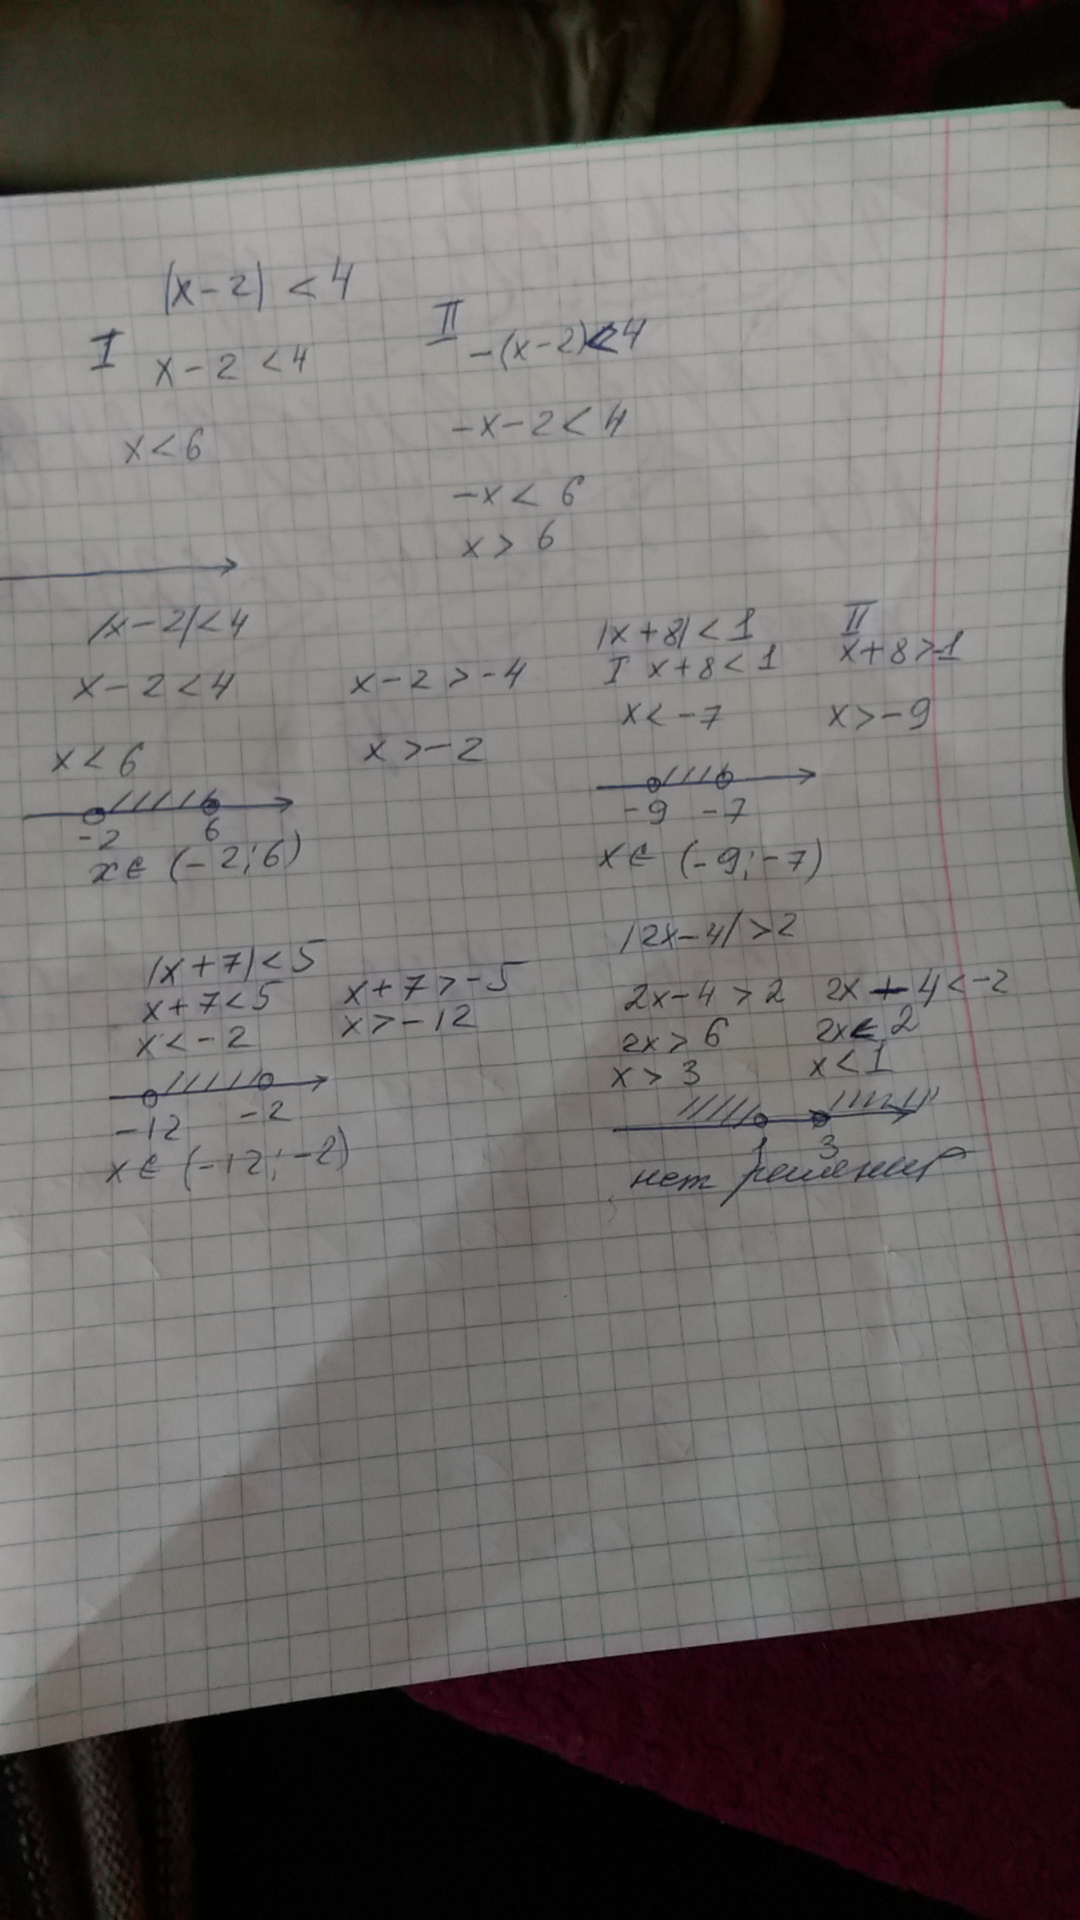 |x-2| < 4
I x-2 < 4
x < 6
II -(x-2) < 4
-x-2 < 4
-x < 6
x > 6
|x-2| < 4
x-2 < 4 x-2 > -4
x < 6 x > -2
-2 6
x ∈ (-2; 6)
|x+8| < 1
I x+8 < 1 II x+8 > -1
x < -7 x > -9
-9 -7
x ∈ (-9; -7)
|x+7| < 5
x+7 < 5 x+7 > -5
x < -2 x > -12
-12 -2
x ∈ (-12; -2)
|2x-4| > 2
2x-4 > 2 2x-4 < -2
2x > 6 2x < 2
x > 3 x < 1
1 3
нет решения